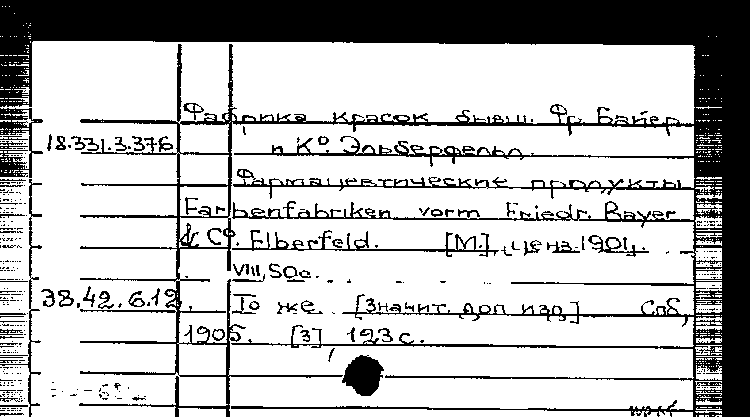 Фабрика красок бывш. Фр. Байер
18.331.3.376 и К°. Эльберфельд.
Фармацевтические продукты
Farbenfabriken vorm Friedr. Bayer
& C°. Elberfeld. [М.], ценз. 1901.
VIII, 50 с.
38.42.6.12. То же. [Значит. доп. изд.] Спб,
1905. [3], 123 с.